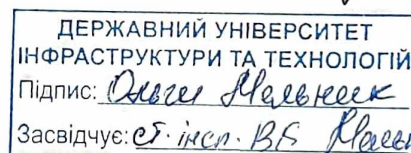 ДЕРЖАВНИЙ УНІВЕРСИТЕТ
ІНФРАСТРУКТУРИ ТА ТЕХНОЛОГІЙ
Підпис: Ольги Мельник
Засвідчує: ст. інсп. ВК